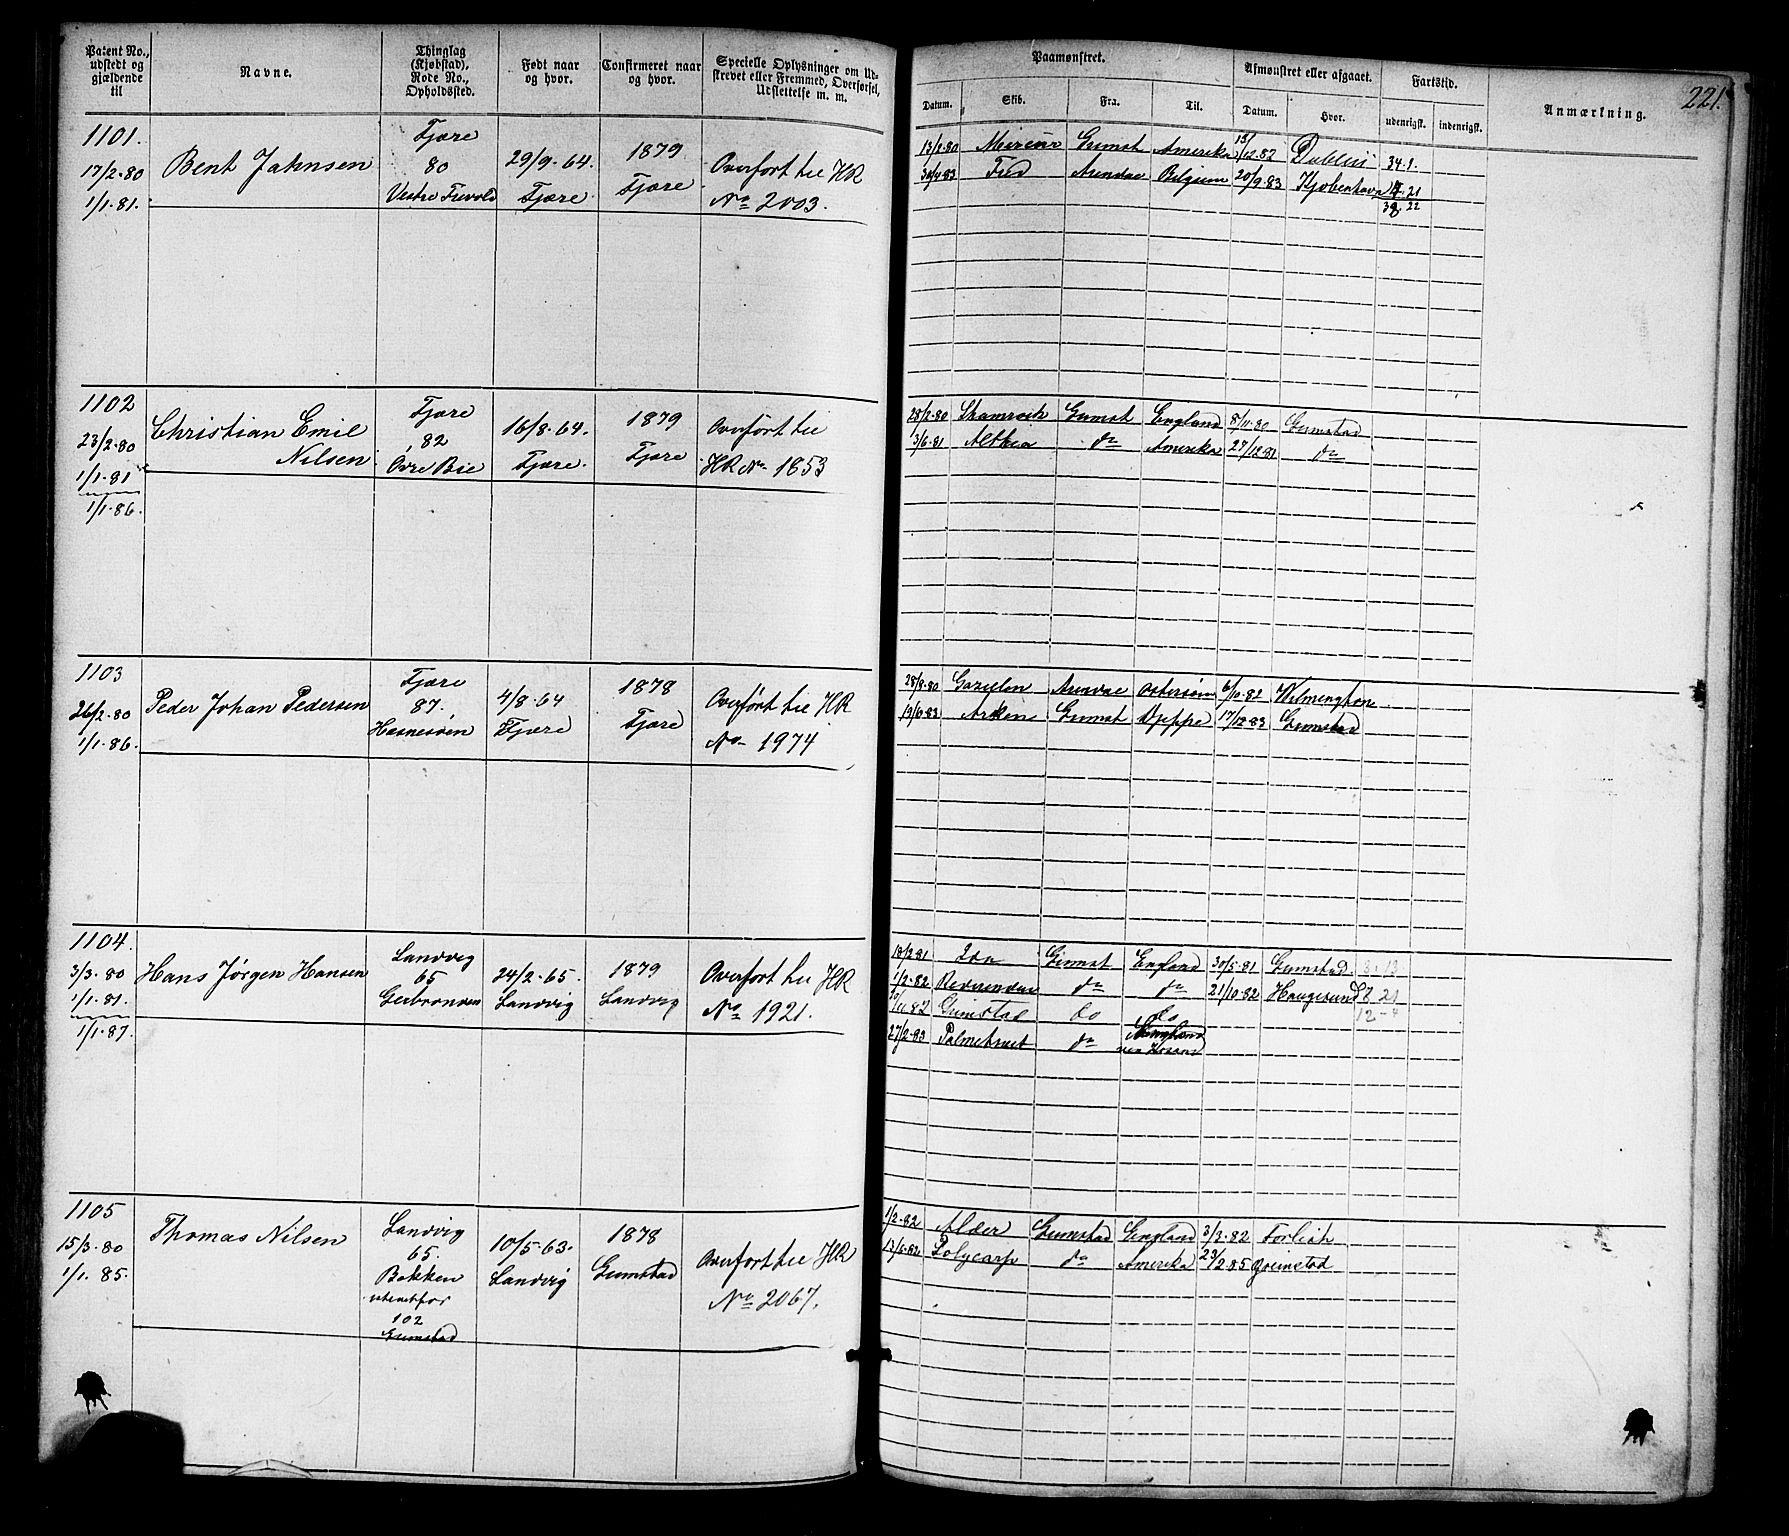 Patent No., udstedt og gjældende til
Navne.
Thinglag (Kjøbstad), Rode No., Opholdssted.
Født naar og hvor.
Confirmeret naar og hvor.
Specielle Oplysninger om Udskrevet eller Fremmed, Overførsel, Udslettelse m. m.
Paamønstret.
Datum. Skib. Fra. Til.
Afmønstret eller afgaaet.
Datum. Hvor.
Fartstid.
udenrigsk. indenrigsk.
Anmærkning.
221.
1101.
17/2·80
1/1·81.
Bent Jahnsen
Fjære
80
Vestre
29/9·64.
Fjære
1879
Fjære
Overført til HR
No 2003.
13/2·80 Mercur Grimst Amerika 15/12·82 Dublin 34.1.
30/4·83 Fred Arendal Belgien 20/9·83 Kjøbenhavn 4.21
38 22
1102
23/2·80
1/1·81
1/1·86.
Christian Emil
Nilsen
Fjære
82
Øvre Bie
16/8·64.
Fjære.
1879
Fjære
Overført til
HR No. 1853
28/2·80 Shamrock Grimst England 8/11·80 Grimstad
3/6·81 Althea do Amerika 27/12·81 do
1103
26/2·80
1/1·86.
Peder Johan Pedersen
Fjære
87.
Hasnesøen
4/8·64
Fjære
1878
Fjære
Overført til HR
No 1974
28/8·80 Gazellen Arendal Østersøen 6/10·82 Wilmington
19/6·83 Arken Grimst Dieppe 17/12·83 Grimstad
1104.
3/3·80
1/1·81.
1/1·87.
Hans Jørgen Hansen
Landvig
65
24/2·65.
Landvig
1879
Landvig
Overført til HR
No 1921.
18/2·81 Grimst England 30/5·81 Grimstad 8.13
1/2·82 do do 21/10·82 Haugesund 8 21
Grimstad do do 12-4
27/2·83 Palmetræet do England
1105
15/3·80
1/1·85.
Thomas Nilsen
Landvig
65.
Bakken
udenfor
102
Grimstad
10/5·63.
Landvig
1878
Grimstad
Overført til HR
No 2067.
1/2·82 Alder Grimstad England 3/3·82
13/6·82 Polycarp do Amerika 23/2·85 Grimstad